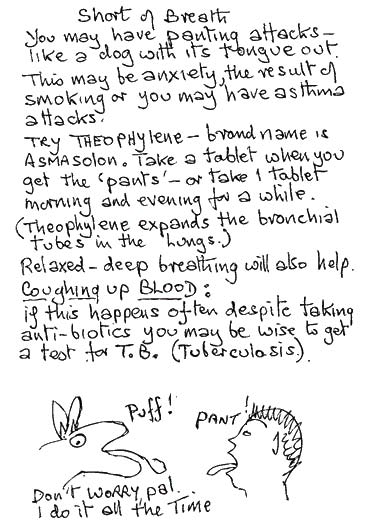 Short of Breath
You may have panting attacks –
like a dog with its tongue out.
This may be anxiety, the result of
smoking or you may have asthma
attacks.
Try THEOPHYLENE – brand name is
ASMASOLON. Take a tablet when you
get the 'pants' – or take 1 tablet
morning and evening for a while.
(Theophylene expands the bronchial
tubes in the lungs.)
Relaxed – deep breathing will also help.
Coughing up BLOOD:
if this happens often despite taking
anti-biotics you may be wise to get
a test for T.B. (Tuberculosis).
Puff!
PANT!
Don't WORRY, pal.
I do it all the Time